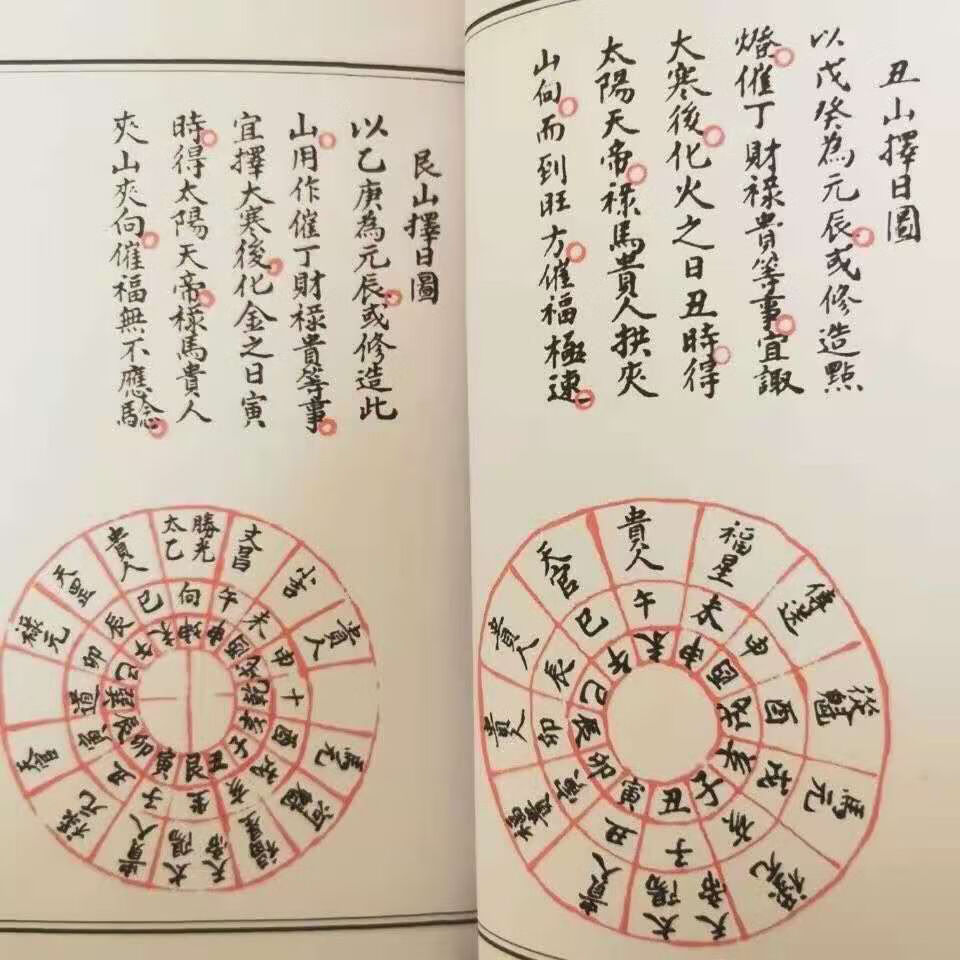 丑山擇日圖
以戊癸為元辰或修造點
燈催丁財祿貴等事宜諏
大寒後化火之日丑時得
太陽天帝祿馬貴人拱夾
山向而到旺方催福極速
貴人
福星
傳送
從魁
馬元
祿元
天帝
太陽
貴人
貴人
貴人
天官
午
未
申
酉
戌
亥
子
丑
寅
卯
辰
巳
未
申
酉
戌
亥
子
丑
寅
卯
辰
巳
午
艮山擇日圖
以乙庚為元辰或修造此
山用作催丁財祿貴等事
宜擇大寒後化金之日寅
時得太陽天帝祿馬貴人
夾山夾向催福無不應驗
勝光
太乙
文昌
小吉
貴人
十
馬元
河魁
福星
天帝
太陽
貴人
祿元
道
祿元
天罡
貴人
向
午
未
申
酉
戌
亥
坐
子
丑
寅
卯
辰
巳
坤
申
酉
戌
乾
亥
子
丑
艮
寅
卯
辰
巽
巳
午
未